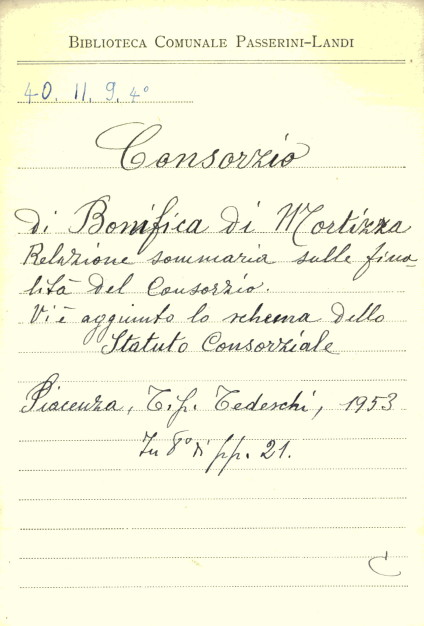 BIBLIOTECA COMUNALE PASSERINI-LANDI
40. 11. 9. 4°
Consorzio
di Bonifica di Mortizza
Relazione sommaria sulle fina-
lità del Consorzio.
Vi è aggiunto lo schema dello
Statuto Consorziale
Piacenza, Tip. Tedeschi, 1953
In 8° di pp. 21.
C